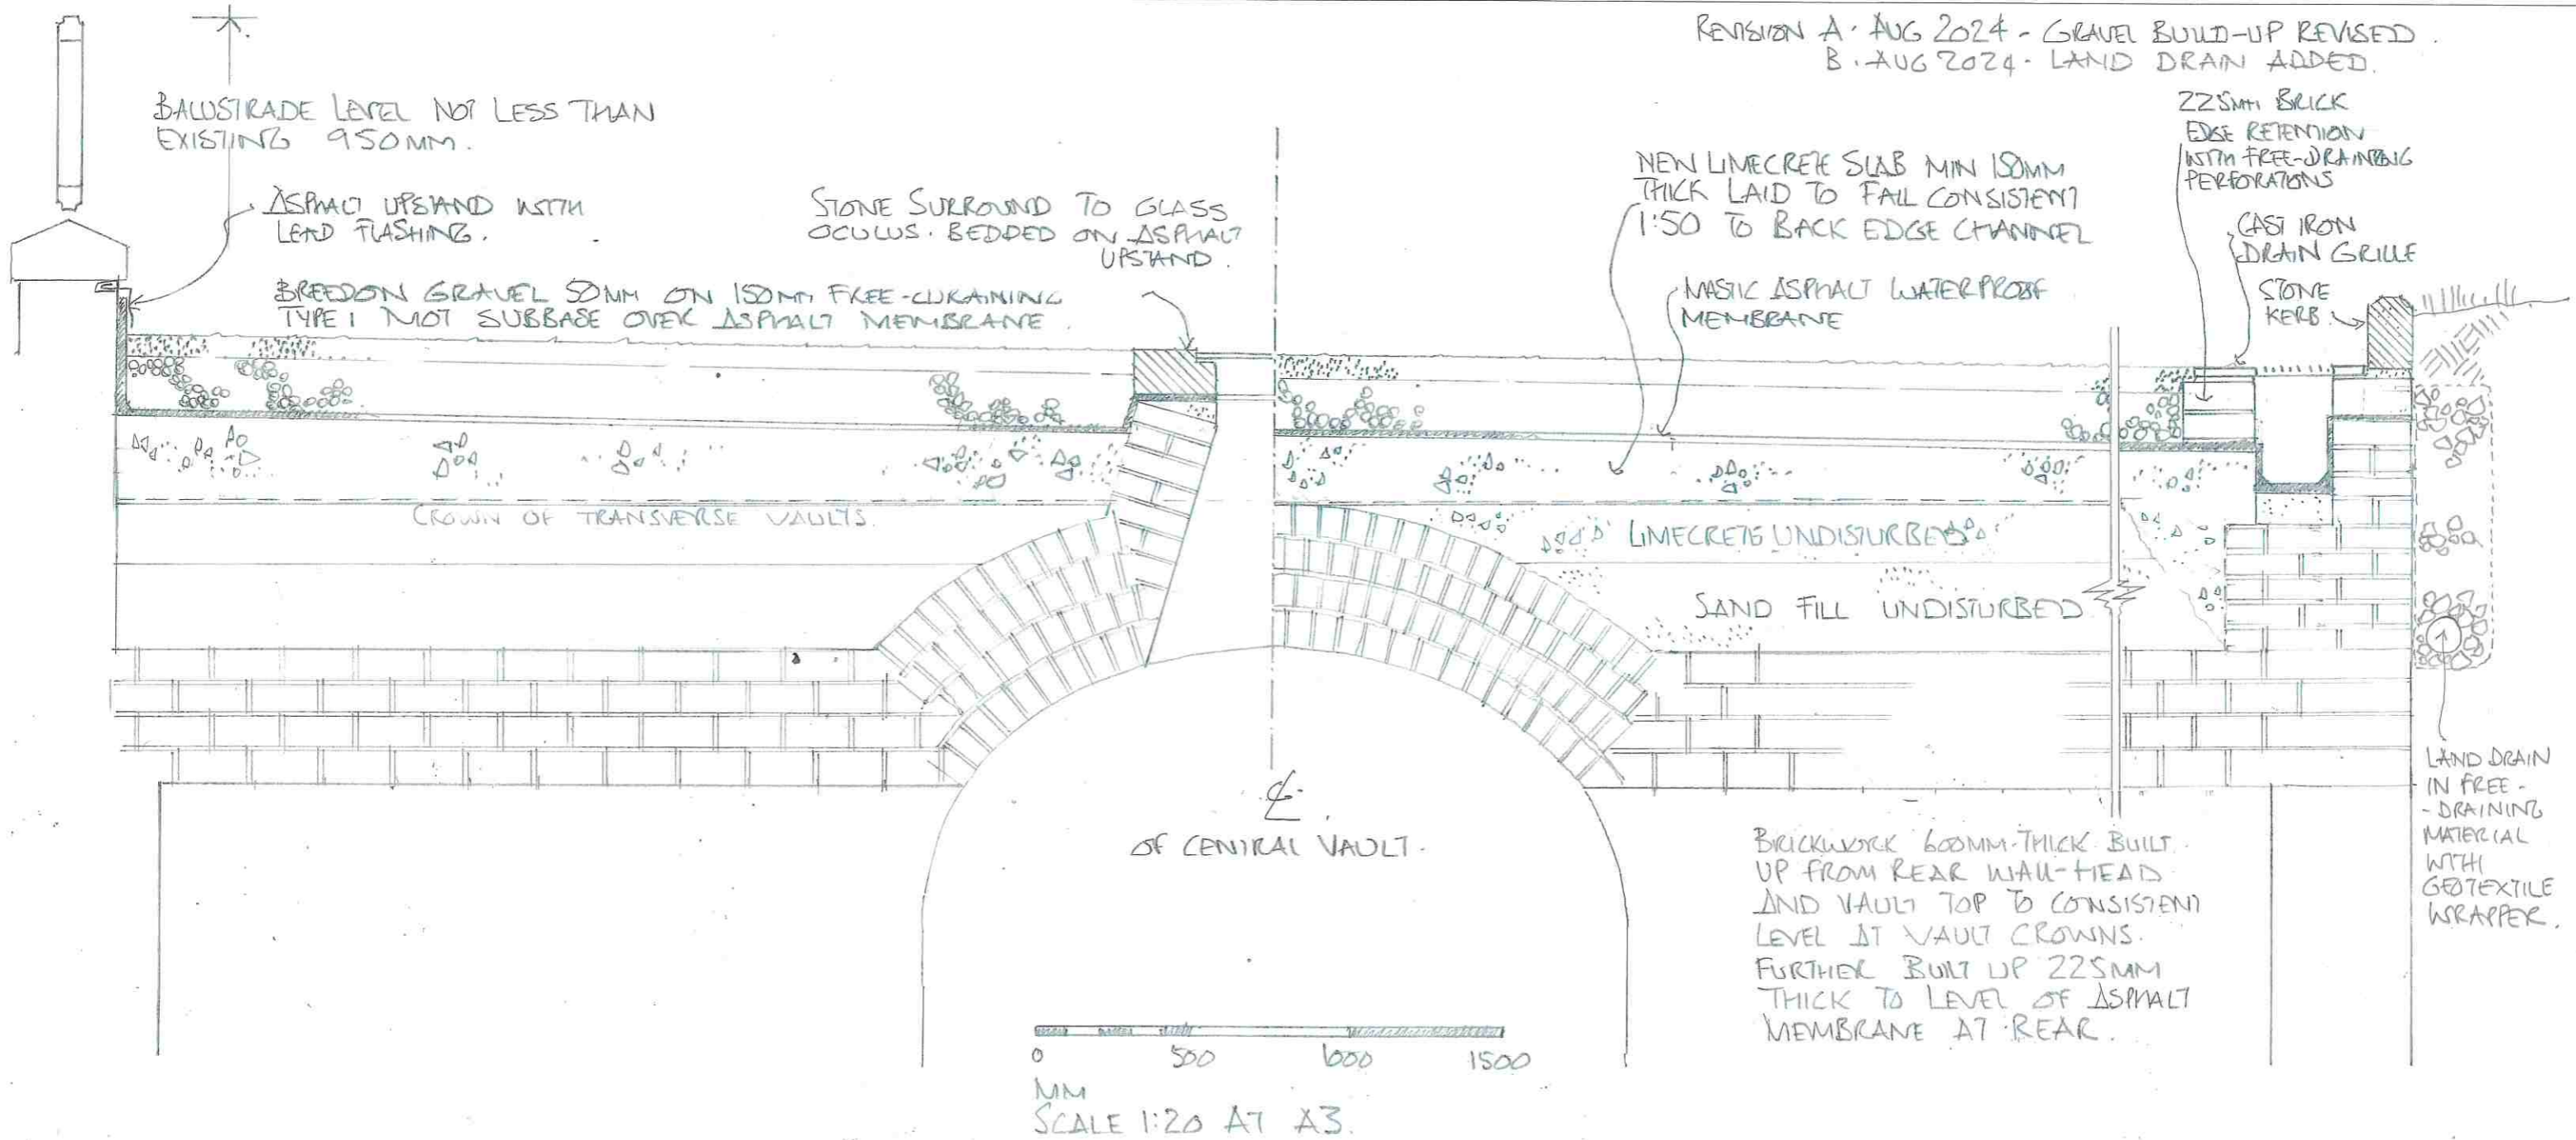 REVISION A. AUG 2024 - GRAVEL BUILD-UP REVISED.
B. AUG 2024. LAND DRAIN ADDED.
BALUSTRADE LEVEL NOT LESS THAN
EXISTING 950MM.
ASPHALT UPSTAND WITH
LEAD FLASHING.
STONE SURROUND TO GLASS
OCULUS. BEDDED ON ASPHALT
UPSTAND.
BREEDON GRAVEL 50MM ON 150MM FREE-DRAINING
TYPE 1 MOT SUBBASE OVER ASPHALT MEMBRANE.
NEW LIMECRETE SLAB MIN 150MM
THICK LAID TO FALL CONSISTENT
1:50 TO BACK EDGE CHANNEL
MASTIC ASPHALT WATERPROOF
MEMBRANE
225MM BRICK
EDGE RETENTION
WITH FREE-DRAINING
PERFORATIONS
CAST IRON
DRAIN GRILLE
STONE
KERB.
CROWN OF TRANSVERSE VAULTS.
LIMECRETE UNDISTURBED
SAND FILL UNDISTURBED
℄
OF CENTRAL VAULT.
LAND DRAIN
IN FREE-
-DRAINING
MATERIAL
WITH
GEOTEXTILE
WRAPPER.
BRICKWORK 600MM-THICK BUILT
UP FROM REAR WALL-HEAD
AND VAULT TOP TO CONSISTENT
LEVEL AT VAULT CROWNS.
FURTHER BUILT UP 225MM
THICK TO LEVEL OF ASPHALT
MEMBRANE AT REAR.
0 500 1000 1500
MM
SCALE 1:20 AT A3.